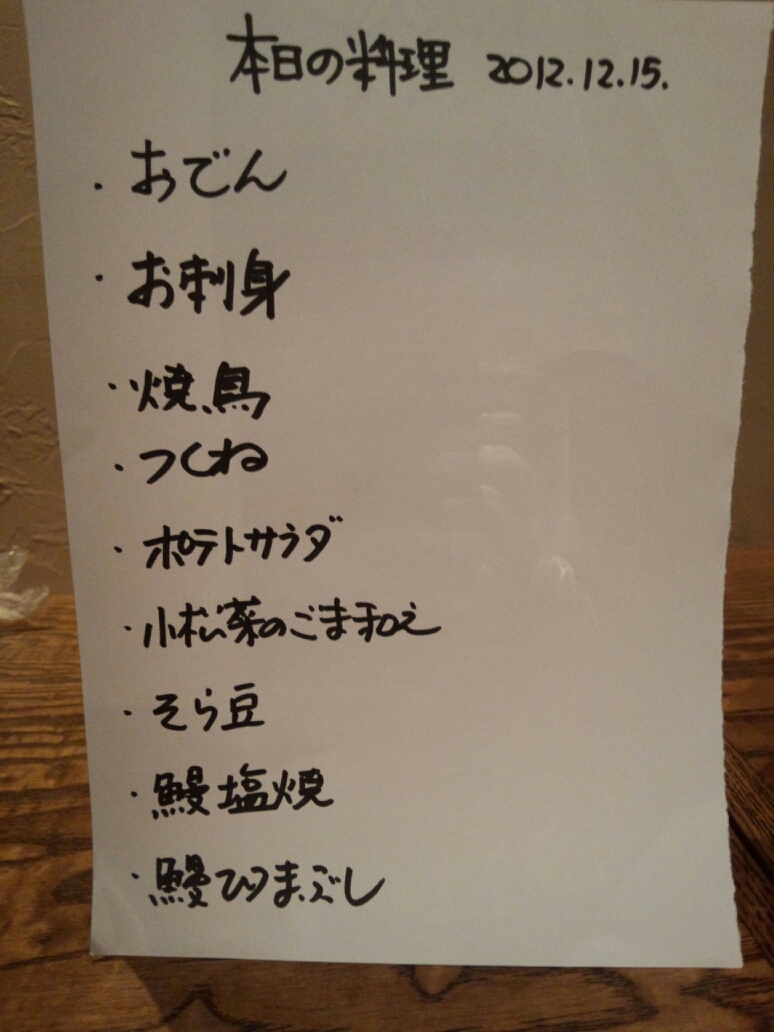 本日の料理 2012.12.15.
・おでん
・お刺身
・焼鳥
・つくね
・ポテトサラダ
・小松菜のごま和え
・そら豆
・鰻塩焼
・鰻ひつまぶし